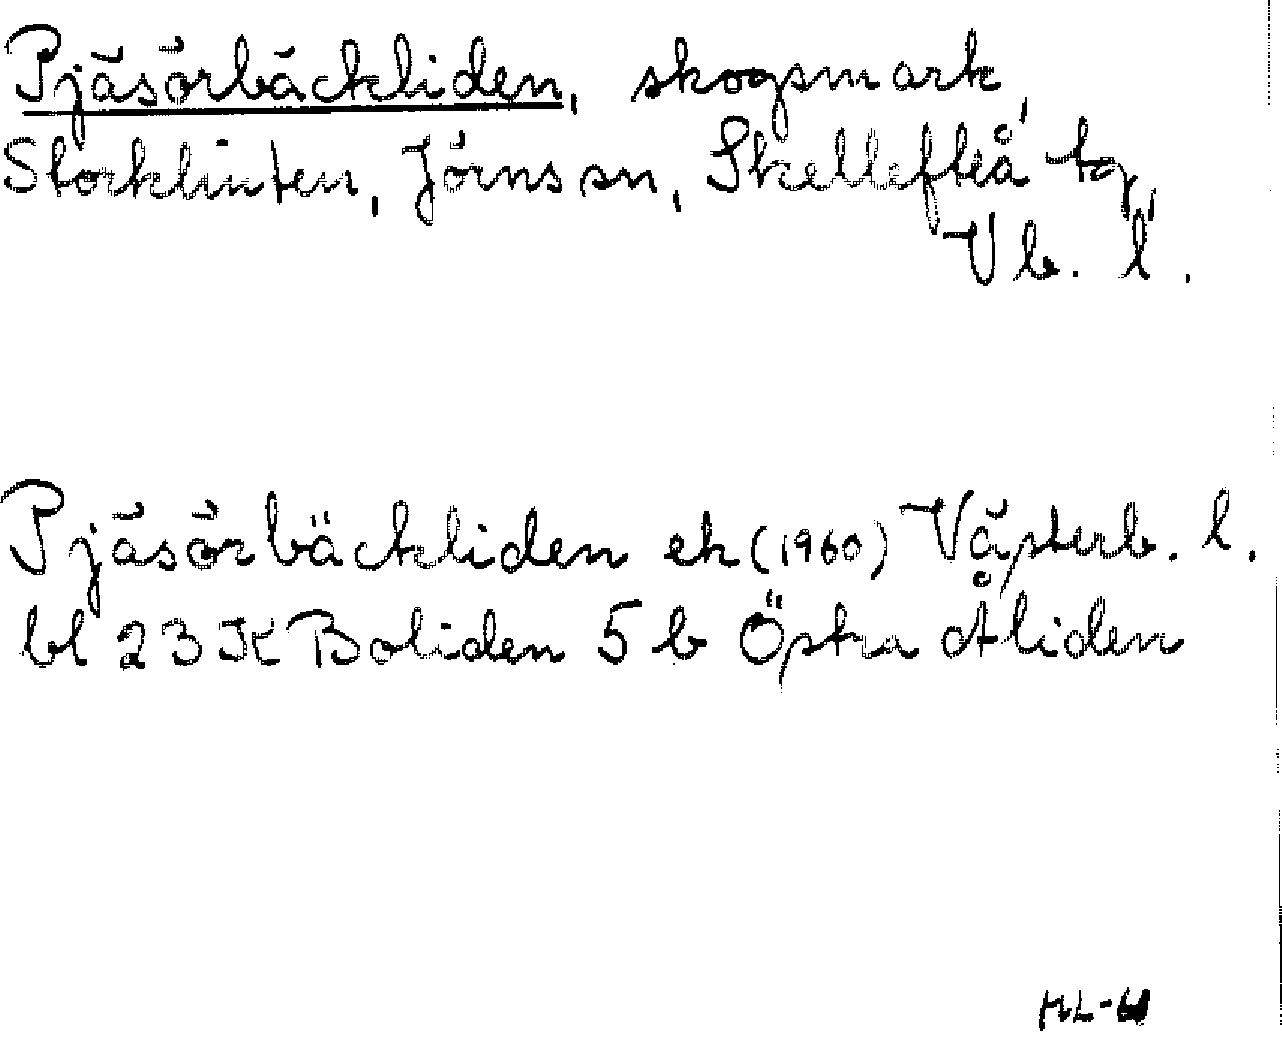 Pjäsörbäckliden, skogsmark,
Storklinten, Jörns sn, Skellefteå tg,
Vb. l.
Pjäsörbäckliden ek (1960) Västerb. l.
bl 23 K Boliden 5 b Östra Åliden